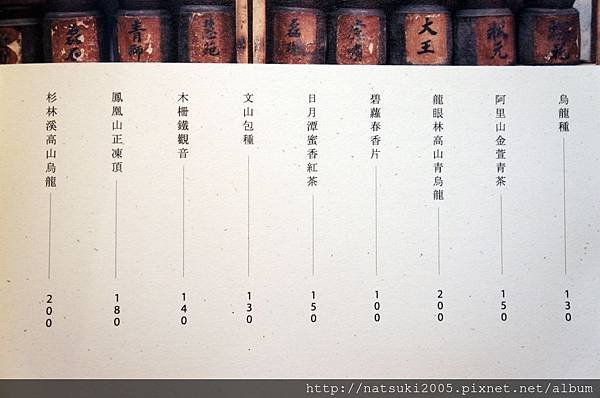 大王
烏龍種 130
阿里山金萱青茶 150
龍眼林高山青烏龍 200
碧蘿春香片 100
日月潭蜜香紅茶 150
文山包種 130
木柵鐵觀音 140
鳳凰山正凍頂 180
杉林溪高山烏龍 200
http://natsuki2005.pixnet.net/album